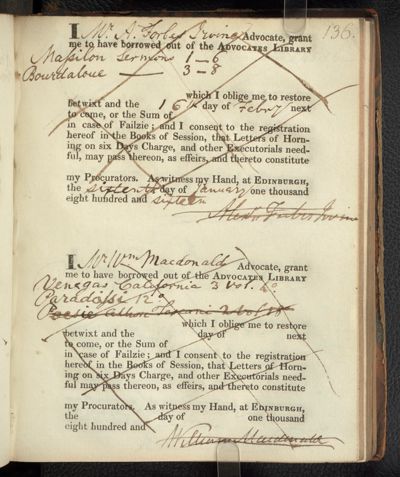 136.
I Mr. A. Forbes Irvine Advocate, grant
me to have borrowed out of the ADVOCATES LIBRARY
Masilon Sermons 1—6
Bourdaloue — 3—8
which I oblige me to restore
betwixt and the 16th day of Febry next
to come, or the Sum of
in case of Failzie; and I consent to the registration
hereof in the Books of Session, that Letters of Horn-
ing on six Days Charge, and other Executorials need-
ful, may pass thereon, as effeirs, and thereto constitute
my Procurators. As witness my Hand, at EDINBURGH,
the sixteenth day of January one thousand
eight hundred and sixteen
Alexr Forbes Irvine
I Mr Wm Macdonald Advocate, grant
me to have borrowed out of the ADVOCATES LIBRARY
Venegas California 3 vol. 4o
Paradisi 12o
Poesie 2 vol
which I oblige me to restore
betwixt and the day of next
to come, or the Sum of
in case of Failzie; and I consent to the registration
hereof in the Books of Session, that Letters of Horn-
ing on six Days Charge, and other Executorials need-
ful may pass thereon, as effeirs, and thereto constitute
my Procurators. As witness my Hand, at EDINBURGH,
the day of one thousand
eight hundred and
William Macdonald